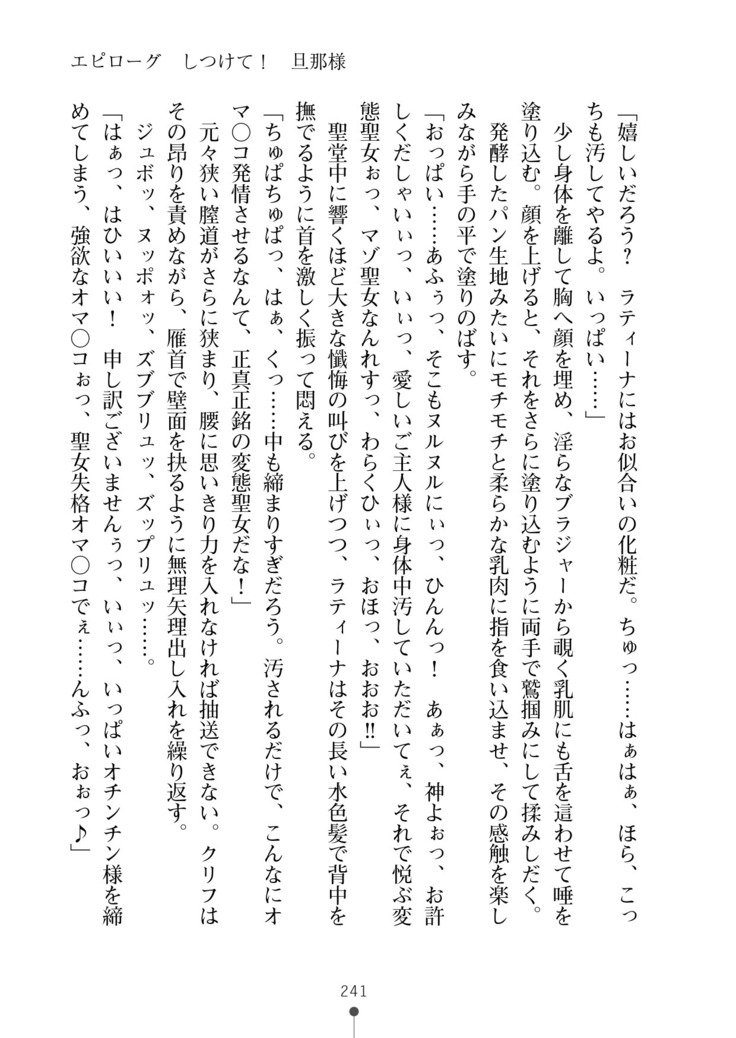 エピローグ　しつけて！　旦那様
「嬉しいだろう？　ラティーナにはお似合いの化粧だ。ちゅっ……はぁはぁ、ほら、こっ
ちも汚してやるよ。いっぱい……」
　少し身体を離して胸へ顔を埋め、淫らなブラジャーから覗く乳肌にも舌を這わせて唾を
塗り込む。顔を上げると、それをさらに塗り込むように両手で鷲掴みにして揉みしだく。
　発酵したパン生地みたいにモチモチと柔らかな乳肉に指を食い込ませ、その感触を楽し
みながら手の平で塗りのばす。
「おっぱい……あふぅっ、そこもヌルヌルにぃっ、ひんんっ！　あぁっ、神よぉっ、お許
しくだしゃいぃっ、いぃっ、愛しいご主人様に身体中汚していただいてぇ、それで悦ぶ変
態聖女ぉっ、マゾ聖女なんれすっ、わらくひぃっ、おほっ、おおお!!」
　聖堂中に響くほど大きな懺悔の叫びを上げつつ、ラティーナはその長い水色髪で背中を
撫でるように首を激しく振って悶える。
「ちゅぱちゅぱっ、はぁ、くっ……中も締まりすぎだろう。汚されるだけで、こんなにオ
マ〇コ発情させるなんて、正真正銘の変態聖女だな！」
　元々狭い膣道がさらに狭まり、腰に思いきり力を入れなければ抽送できない。クリフは
その昂りを責めながら、雁首で壁面を抉るように無理矢理出し入れを繰り返す。
　ジュボッ、ヌッポォッ、ズブブリュッ、ズップリュッ……。
「はぁっ、はひいいい！　申し訳ございませんぅっ、いぃっ、いっぱいオチンチン様を締
めてしまう、強欲なオマ〇コぉっ、聖女失格オマ〇コでぇ……んふっ、おぉっ♪」
241